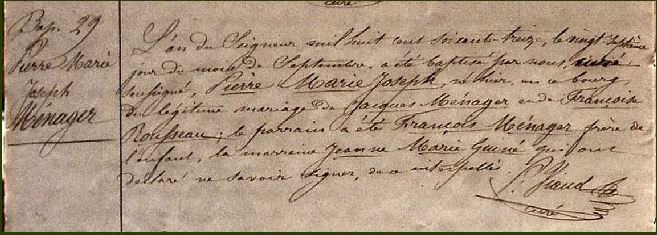 curé
Bap. 29
Pierre Marie
Joseph
Ménager
L'an du Seigneur mil huit cent soixante treize, le vingt septième
jour du mois de Septembre, a été baptisé par nous, curé
susigné, Pierre Marie Joseph, né hier, en ce bourg,
du légitime mariage de Jacques Ménager et de Françoise
Rousseau; le parrain a été François Ménager frère de
l'enfant, la marraine Jeanne Marie Guiné qui ont
déclaré ne savoir signer, de ce interpellé.
Viaud
curé